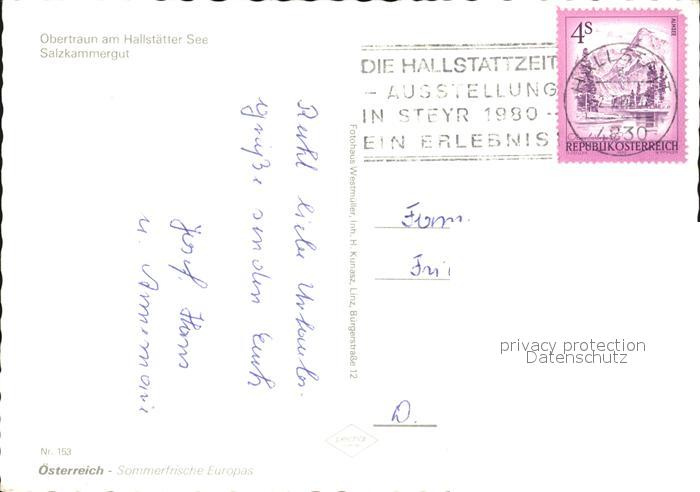 Obertraun am Hallstätter See
Salzkammergut
DIE HALLSTATTZEIT
- AUSSTELLUNG
IN STEYR 1980 -
EIN ERLEBNIS
4S
ALMSEE
HALLSTATT
4830
REPUBLIK ÖSTERREICH
Recht liebe Urlaubs-
grüße senden Euch
Josef, Hans
u. Annemarie
Fotohaus Westmüller, Inh. H. Kunasz, Linz, Bürgerstraße 12
Fam.
privacy protection
Datenschutz
D.
Nr. 153
Österreich - Sommerfrische Europas